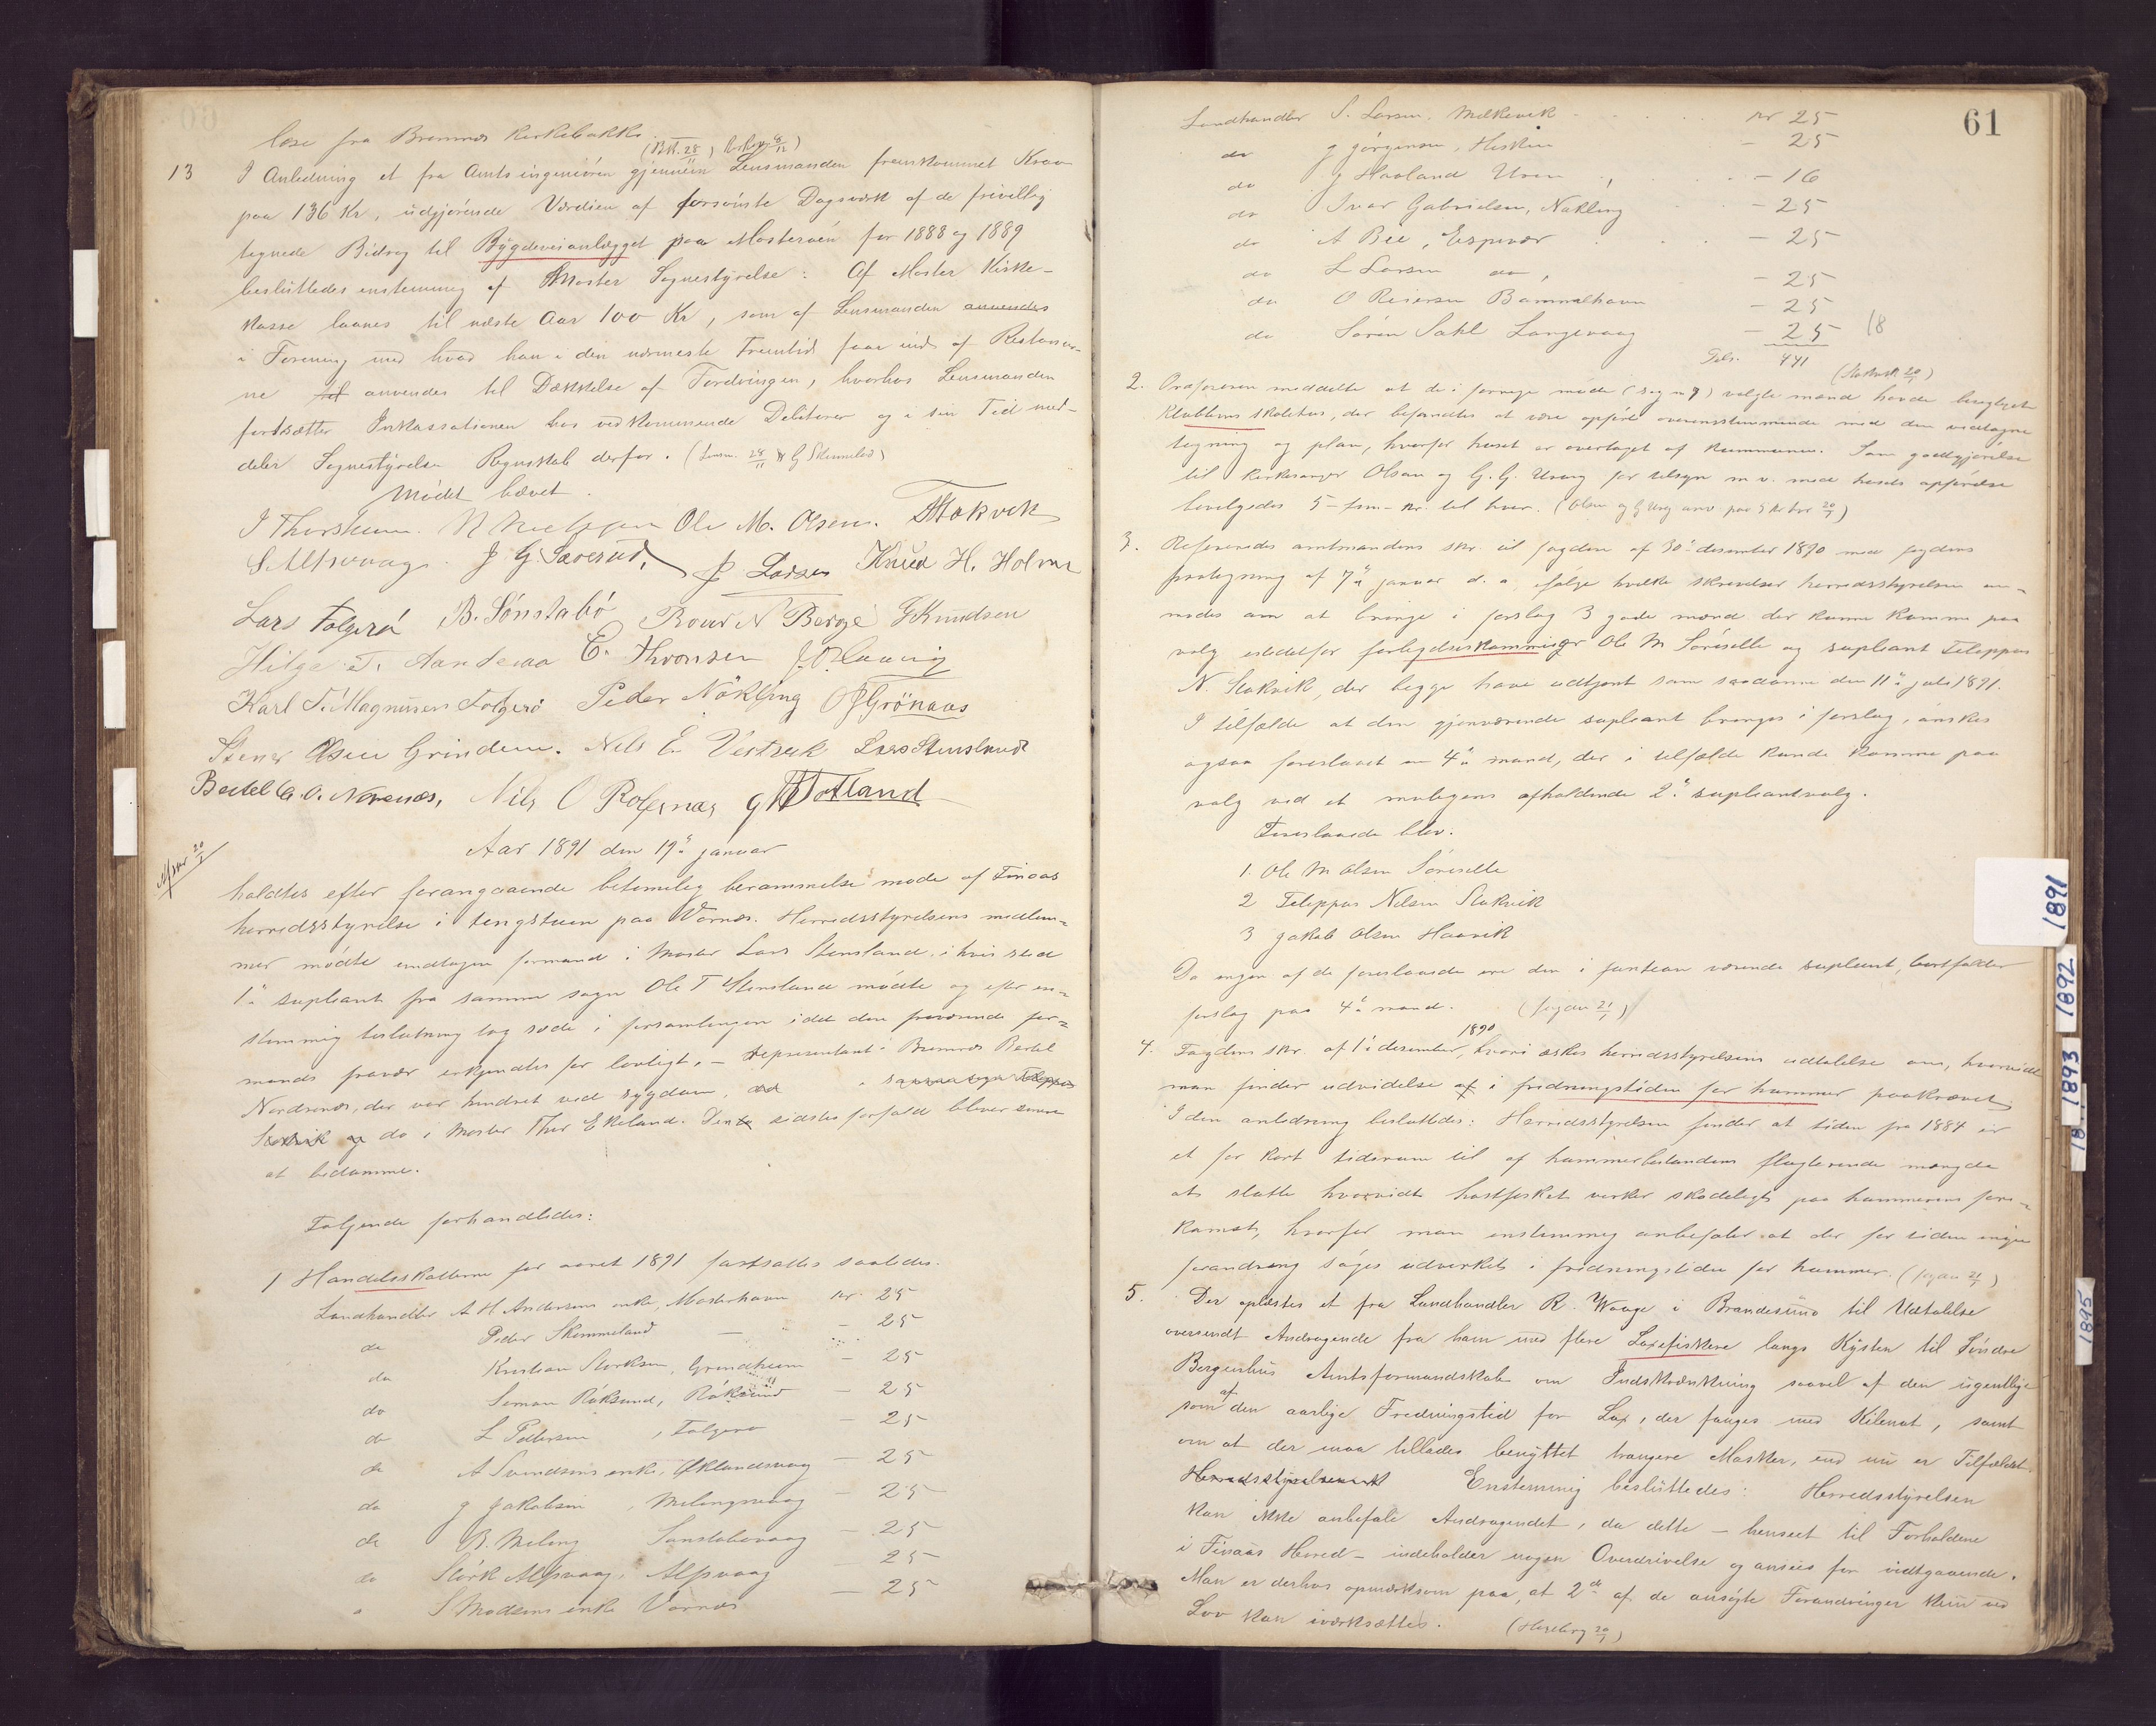 læse fra Bremnes Kirkebakke.
(BK. 28/11)
13 I Anledning et fra Amtsingeniören gjennem Lensmanden fremkommet Krav
paa 136 Kr, udgjörende Værdien af forsömte Dagsværk af de frivillig
tegnede Bidrag til Bygdeveianlægget paa Mosteröen for 1888 og 1889
besluttedes enstemmig af Moster Sognestyrelse: Af Moster Kirke-
kasse laanes til næste Aar 100 Kr, som af Lensmanden anvendes
i Forening med hvad han i den nærmeste Fremtid faar ind af Restancer-
ne til anvendes til Dækkelse af Fordringen, hvorhos Lensmanden
fortsætter Inkassationen hos vedkommende Debitorer og i sin Tid med-
deler Sognestyrelsen Regnskab derfor. (Lensm. 28/11
Mödet hævet.
I Thorsheim. Ole M. Olsen. Stokvik
S Alfsvaag. J. G. Særsud, P Larsen Knud H. Holme
Lars Folgerö B. Sönstabö Roar N Berge G Knudsen
Helge T. E. Thronsen
Karl T. Magnusen Folgerö Peder Nökling Grönaas
Stener Olsen Grindem. Nels E. Vestvik Lars Stensland
Bertel G. O. Norenæs, Nils O Rolfsnæs Totland
Aar 1891 den 19de januar
Afskr 20/1
holdtes efter forangaaende betimelig berammelse möde af Finaas
herredsstyrelse i tingstuen paa Vornæs. Herredsstyrelsens medlem-
mer mödte undtagen formand i Moster Lars Stensland, i hvis sted
1ste supleant fra samme sogn Ole T Stensland mödte og efter en-
stemmig beslutning tog sæde i forsamlingen idet den fraværende for-
mands fravær erkjendtes for lovligt, – representant i Bremnes Bertel
Nordrenæs, der var hindret ved sygdom,
Stokvik og do i Moster Thor Ekeland. Dette sidstes forfald bliver senere
at bedömme.
Fölgende forhandledes:
1 Handelsskatterne for aaret 1891 fastsattes saaledes:
Landhandler A H Andersens enke, Mosterhavn kr. 25
do Peder Skimmeland — - 25
do Kristian Storksen, Grindheim – 25
do Simon Röksund, Röksund – 25
do L Pedersen, Folgerö – 25
do A Svendsens enke, Öklandsvaag – 25
do J Jakobsen, Melingsvaag – 25
do B. Meling Sönstabövaag – 25
do Störk Alfsvaag, Alfsvaag 25
S Madsens enke Vornæs – 25
61
Landhandler S. Larsen. Melkevik kr 25
do J Jörgensen, Hisken – 25
do J Haaland Uren – 16
do Ivar Gabrielsen, Nökling – 25
do A Bee, Espevær – 25
do L Larsen do, – 25
do O Reiersen Bömmelhavn – 25
do Sören Sahl Langevaag – 25 /8
Tils. 441
2. Ordföreren meddelte at de i forrige möde (sag n 7) valgte mænd havde besigtiget
Klubbens skolehus, der befandtes at være opfört overensstemmende med den vedtagne
tegning og plan, hvorfor huset er overtaget af kommunen. Som godtgjörelse
til kirkesanger Olsen og G. G. Urang for tilsyn m v. med husets opförelse
bevilgedes 5 – fem – kr. til hver.
3. Refereredes amtmandens skr. til fogden af 30te desember 1890 med fogdens
paategning af 7de januar d. a, ifölge hvilke skrivelser herredsstyrelsen an-
modes om at bringe i forslag 3 gode mænd der kunne komme paa
valg istedetfor forligelseskommissær Ole M Söreselle og supleant Teleppus
N. Stokvik, der begge have udtjent som saadanne den 11te juli 1891.
I tilfælde at den gjenværende supleant bringes i forslag, önskes
ogsaa foreslaaet en 4de mand, der i tilfælde kunde komme paa
valg ved et muligens afholdende 2det supleantvalg.
Foreslaaede blev:
1. Ole M Olsen Söreselle
2 Teleppus Nilsen Stokvik
3 Jakob Olsen Haavik
Da ingen af de foreslaaede ere den i funktion værende supleant, bortfalder
forslag paa 4de mand. (fogden 21/1)
4. Fogdens skr. af 1ste desember 1890, hvori æskes herredsstyrelsens udtalelse om, hvorvidt
man finder udvidelse af i fredningstiden for hummer paakrævet
I den anledning besluttedes: Herredsstyrelsen finder at tiden fra 1884 er
et for kort tidsrum til af hummerbestandens flugterende mængde
at slutte hvorvidt höstfisket virker skadeligt paa hummerens fore-
komst, hvorfor man enstemmig anbefaler at der for tiden ingen
forandring söges udvirket i fredningstiden for hummer. (fogden 21/1)
5. Der oplæstes et fra Landhandler R. Waage i Brandesund til Udtalelse
oversendt Andragende fra ham med flere Laxefiskere langs Kysten til Söndre
Bergenhus Amtsformandskab om Indskrænkning saavel af den ugentlige
som af den aarlige Fredningstid for Lax, der fanges med Kilenot, samt
om at der maa tillades benyttet trangere Masker, end nu er Tilfældet.
Herredsstyrelsen Enstemmig besluttedes: Herredsstyrelsen
kan ikke anbefale Andragendet, da dette – henseet til Forholdene
i Finaas Herred – indeholder nogen Overdrivelse og ansees for vidtgaaende.
Man er derhos opmærksom paa, at 2de af de ansögte Forandringer kun ved
Lov kan iværksættes. (Herlberg 20/1)
1891
1892
1893
18
1895